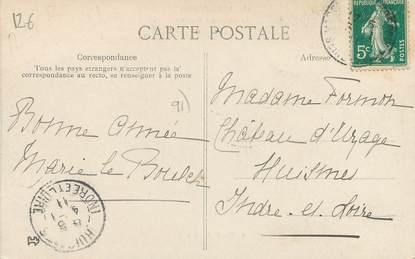 12€
CARTE POSTALE
RÉPUBLIQUE FRANÇAISE
5c
POSTES
Correspondance
Tous les pays étrangers n'acceptent pas la
correspondance au recto, se renseigner à la poste
Adresse
91)
Bonne année
Marie le
Madame Formon
Château d'Uzage
Huismes
Indre-et-Loire
INDRE ET LOIRE